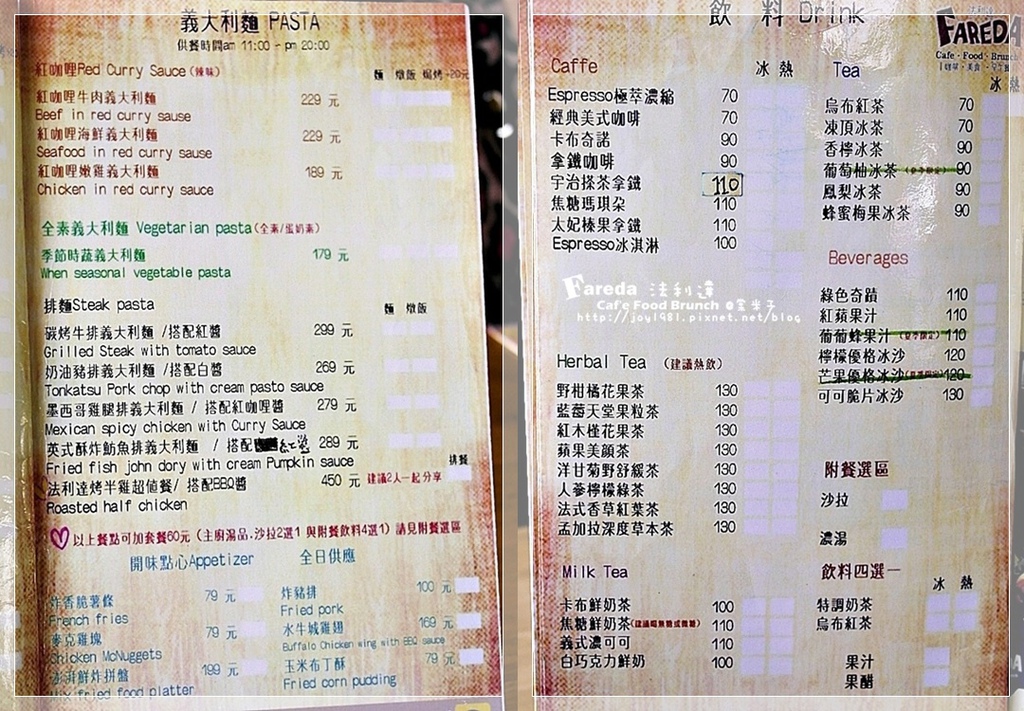 義大利麵 PASTA
供餐時間am 11:00 ~ pm 20:00
紅咖哩Red Curry Sauce(辣味) 麵 燉飯 焗烤+20元
紅咖哩牛肉義大利麵 229 元
Beef in red curry sause
紅咖哩海鮮義大利麵 229 元
Seafood in red curry sause
紅咖哩嫩雞義大利麵 189 元
Chicken in red curry sauce
全素義大利麵 Vegetarian pasta(全素/蛋奶素)
季節時蔬義大利麵 179 元
When seasonal vegetable pasta
排麵Steak pasta 麵 燉飯
碳烤牛排義大利麵 /搭配紅醬 299 元
Grilled Steak with tomato sauce
奶油豬排義大利麵 /搭配白醬 269 元
Tonkatsu Pork chop with cream pasto sauce
墨西哥雞腿排義大利麵 / 搭配紅咖哩醬 279 元
Mexican spicy chicken with Curry Sauce
英式酥炸魴魚排義大利麵 / 搭配 紅醬 289 元
Fried fish john dory with cream Pumpkin sauce 排餐
法利達烤半雞超值餐/ 搭配BBQ醬 450 元 建議2人一起分享
Roasted half chicken
以上餐點可加套餐60元 (主廚湯品.沙拉2選1 與附餐飲料4選1) 請見附餐選區
開味點心Appetizer 全日供應
炸香脆薯條 79 元
French fries
麥克雞塊 79 元
Chicken McNuggets
澎湃鮮炸拼盤 199 元
Mix fried food platter
炸豬排 100 元
Fried pork
水牛城雞翅 169 元
Buffalo Chicken wing with BBQ sauce
玉米布丁酥 79 元
Fried corn pudding
飲 料 Drink
法利達
FAREDA
Cafe·Food·Brunch
Caffe 冰 熱
Espresso極萃濃縮 70
經典美式咖啡 70
卡布奇諾 90
拿鐵咖啡 90
宇治搽茶拿鐵 110
焦糖瑪琪朶 110
太妃榛果拿鐵 110
Espresso冰淇淋 100
Tea 冰 熱
烏布紅茶 70
凍頂冰茶 70
香檸冰茶 90
葡萄柚冰茶(夏季限定) 90
鳳梨冰茶 90
蜂蜜梅果冰茶 90
Beverages
綠色奇蹟 110
紅蘋果汁 110
葡葡蜂果汁(夏季限定) 110
檸檬優格冰沙 120
芒果優格冰沙(夏季限定) 120
可可脆片冰沙 130
Fareda 法利達
Cafe Food Brunch
http://joy1981.pixnet.net/blog
Herbal Tea (建議熱飲)
野柑橘花果茶 130
藍莓天堂果粒茶 130
紅木槿花果茶 130
蘋果美顏茶 130
洋甘菊野舒緩茶 130
人蔘檸檬綠茶 130
法式香草紅葉茶 130
孟加拉深度草本茶 130
附餐選區
沙拉
濃湯
Milk Tea
卡布鮮奶茶 100
焦糖鮮奶茶(建議喝焦糖或微糖) 110
義式濃可可 110
白巧克力鮮奶 100
飲料四選一 冰 熱
特調奶茶
烏布紅茶
果汁
果醋